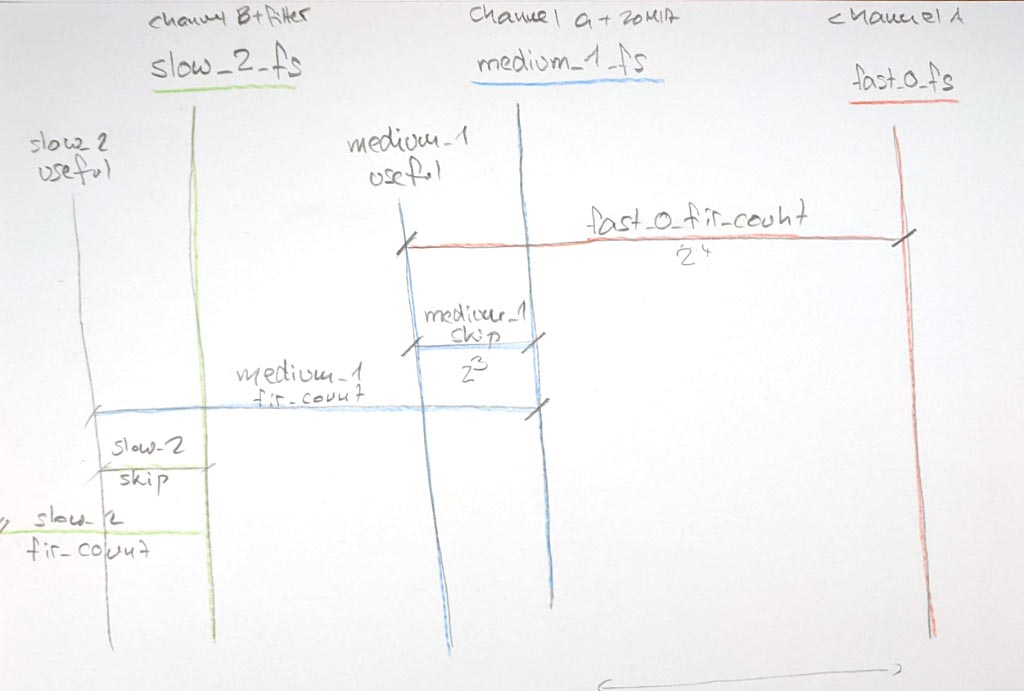 channel B+filter
slow_2_fs
channel a + 20M
channel 1
medium_1_fs
fast_0_fs
slow_2
useful
medium_1
useful
fast_0_fir_count
2⁴
medium_1
skip
2³
medium_1
fir_count
slow_2
skip
slow_2
fir_count